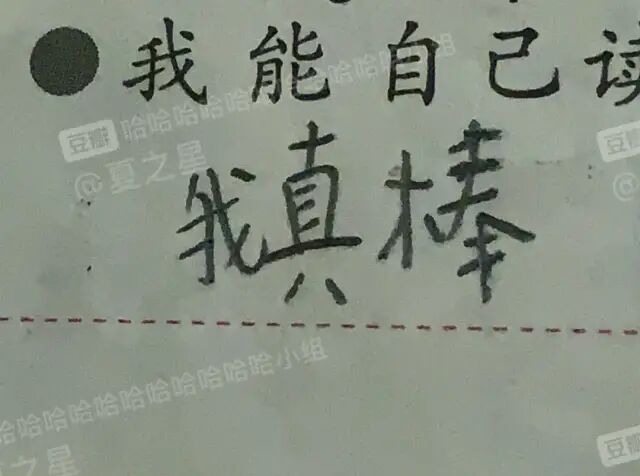 我能自己读
我真棒
豆瓣 哈哈哈哈哈哈哈哈哈哈小组
@夏之星
豆瓣
哈哈哈哈哈哈哈哈哈哈小组
夏之星
豆瓣